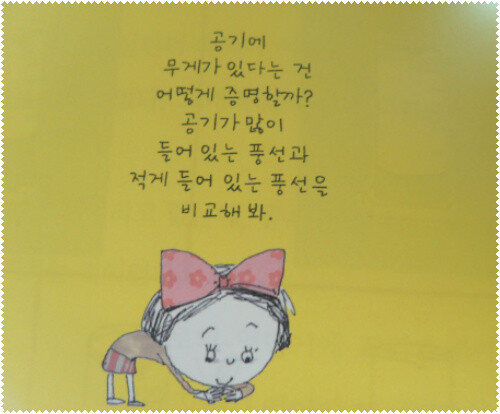 공기에
무게가 있다는 건
어떻게 증명할까?
공기가 많이
들어 있는 풍선과
적게 들어 있는 풍선을
비교해 봐.